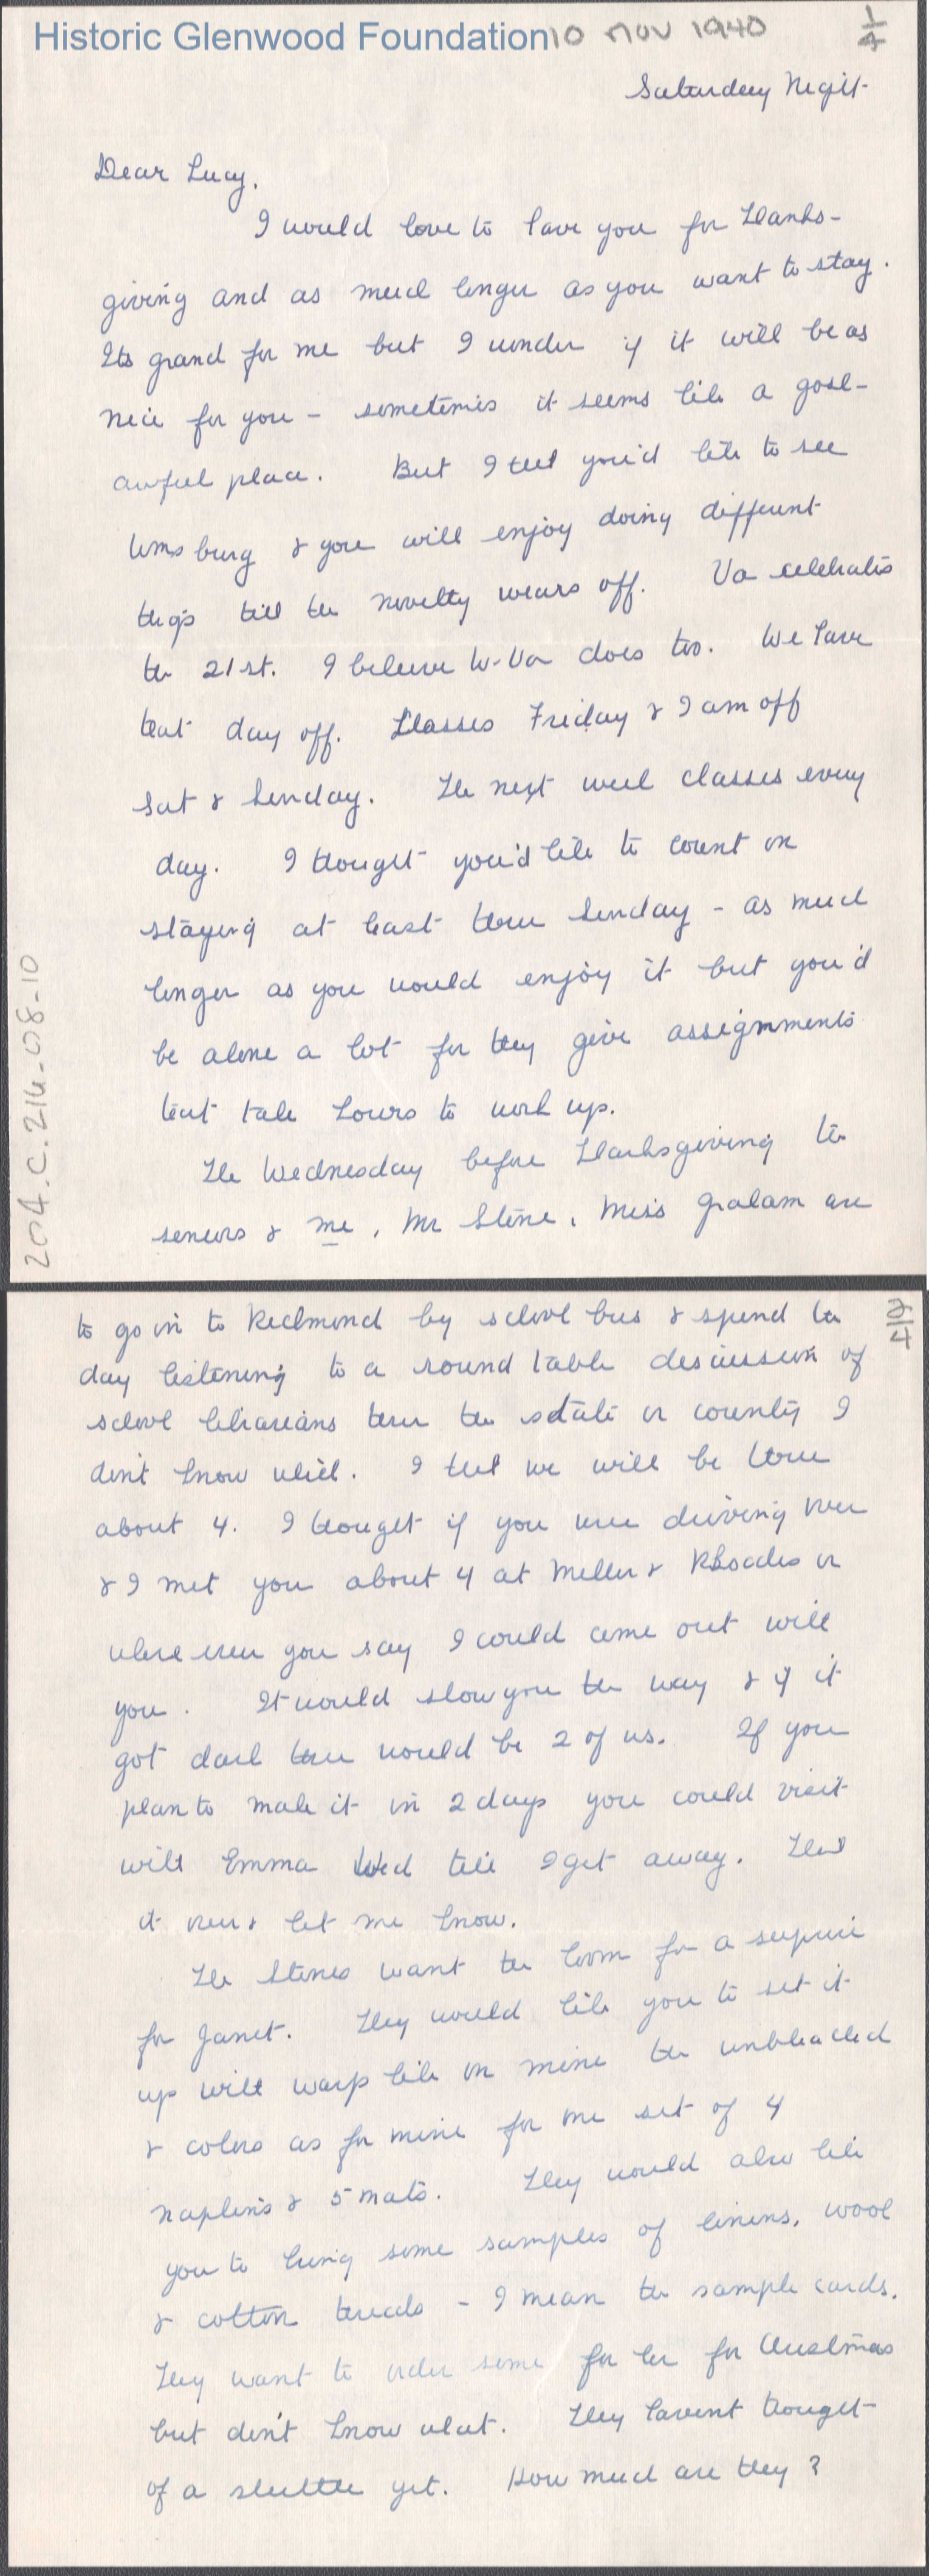 Historic Glenwood Foundation 10 NOV 1940 1/4
Saturday Night
Dear Lucy,
I would love to have you for Thanks-
giving and as much longer as you want to stay.
Its grand for me but I wonder if it will be as
nice for you - sometimes it seems like a
awful place. But I think you'd like to see
Wmsburg & you will enjoy doing different
things till the novelty wears off. Va celebrates
the 21st. I believe W-Va does too. We have
that day off. Classes Friday & I am off
Sat & Sunday. The next week classes every
day. I thought you'd like to count on
staying at least thru Sunday - as much
longer as you would enjoy it but you'd
be alone a lot for they give assignments
that take hours to work up.
The Wednesday before Thanksgiving the
seniors & me, Mr Stone, Miss Graham are
204.C.216-08-10
2/4
to go in to Richmond by school bus & spend the
day listening to a round table discussion of
school librarians thru the state or county I
don't know which. I think we will be thru
about 4. I thought if you were driving over
& I met you about 4 at Miller & Rhoades or
where ever you say I could come out with
you. It would show you the way & if it
got dark there would be 2 of us. If you
plan to make it in 2 days you could visit
with Emma Wed till I get away. Think
it over & let me know.
The Stones want the loom for a suprise
for Janet. They would like you to set it
up with warp like on mine the unbleached
& colors as for mine for me set of 4
napkins & 5 mats. They would also like
you to bring some samples of linens, wool
& cotton threads - I mean the sample cards.
They want to order some for her for Christmas
but don't know what. They havent thought
of a shuttle yet. How much are they?